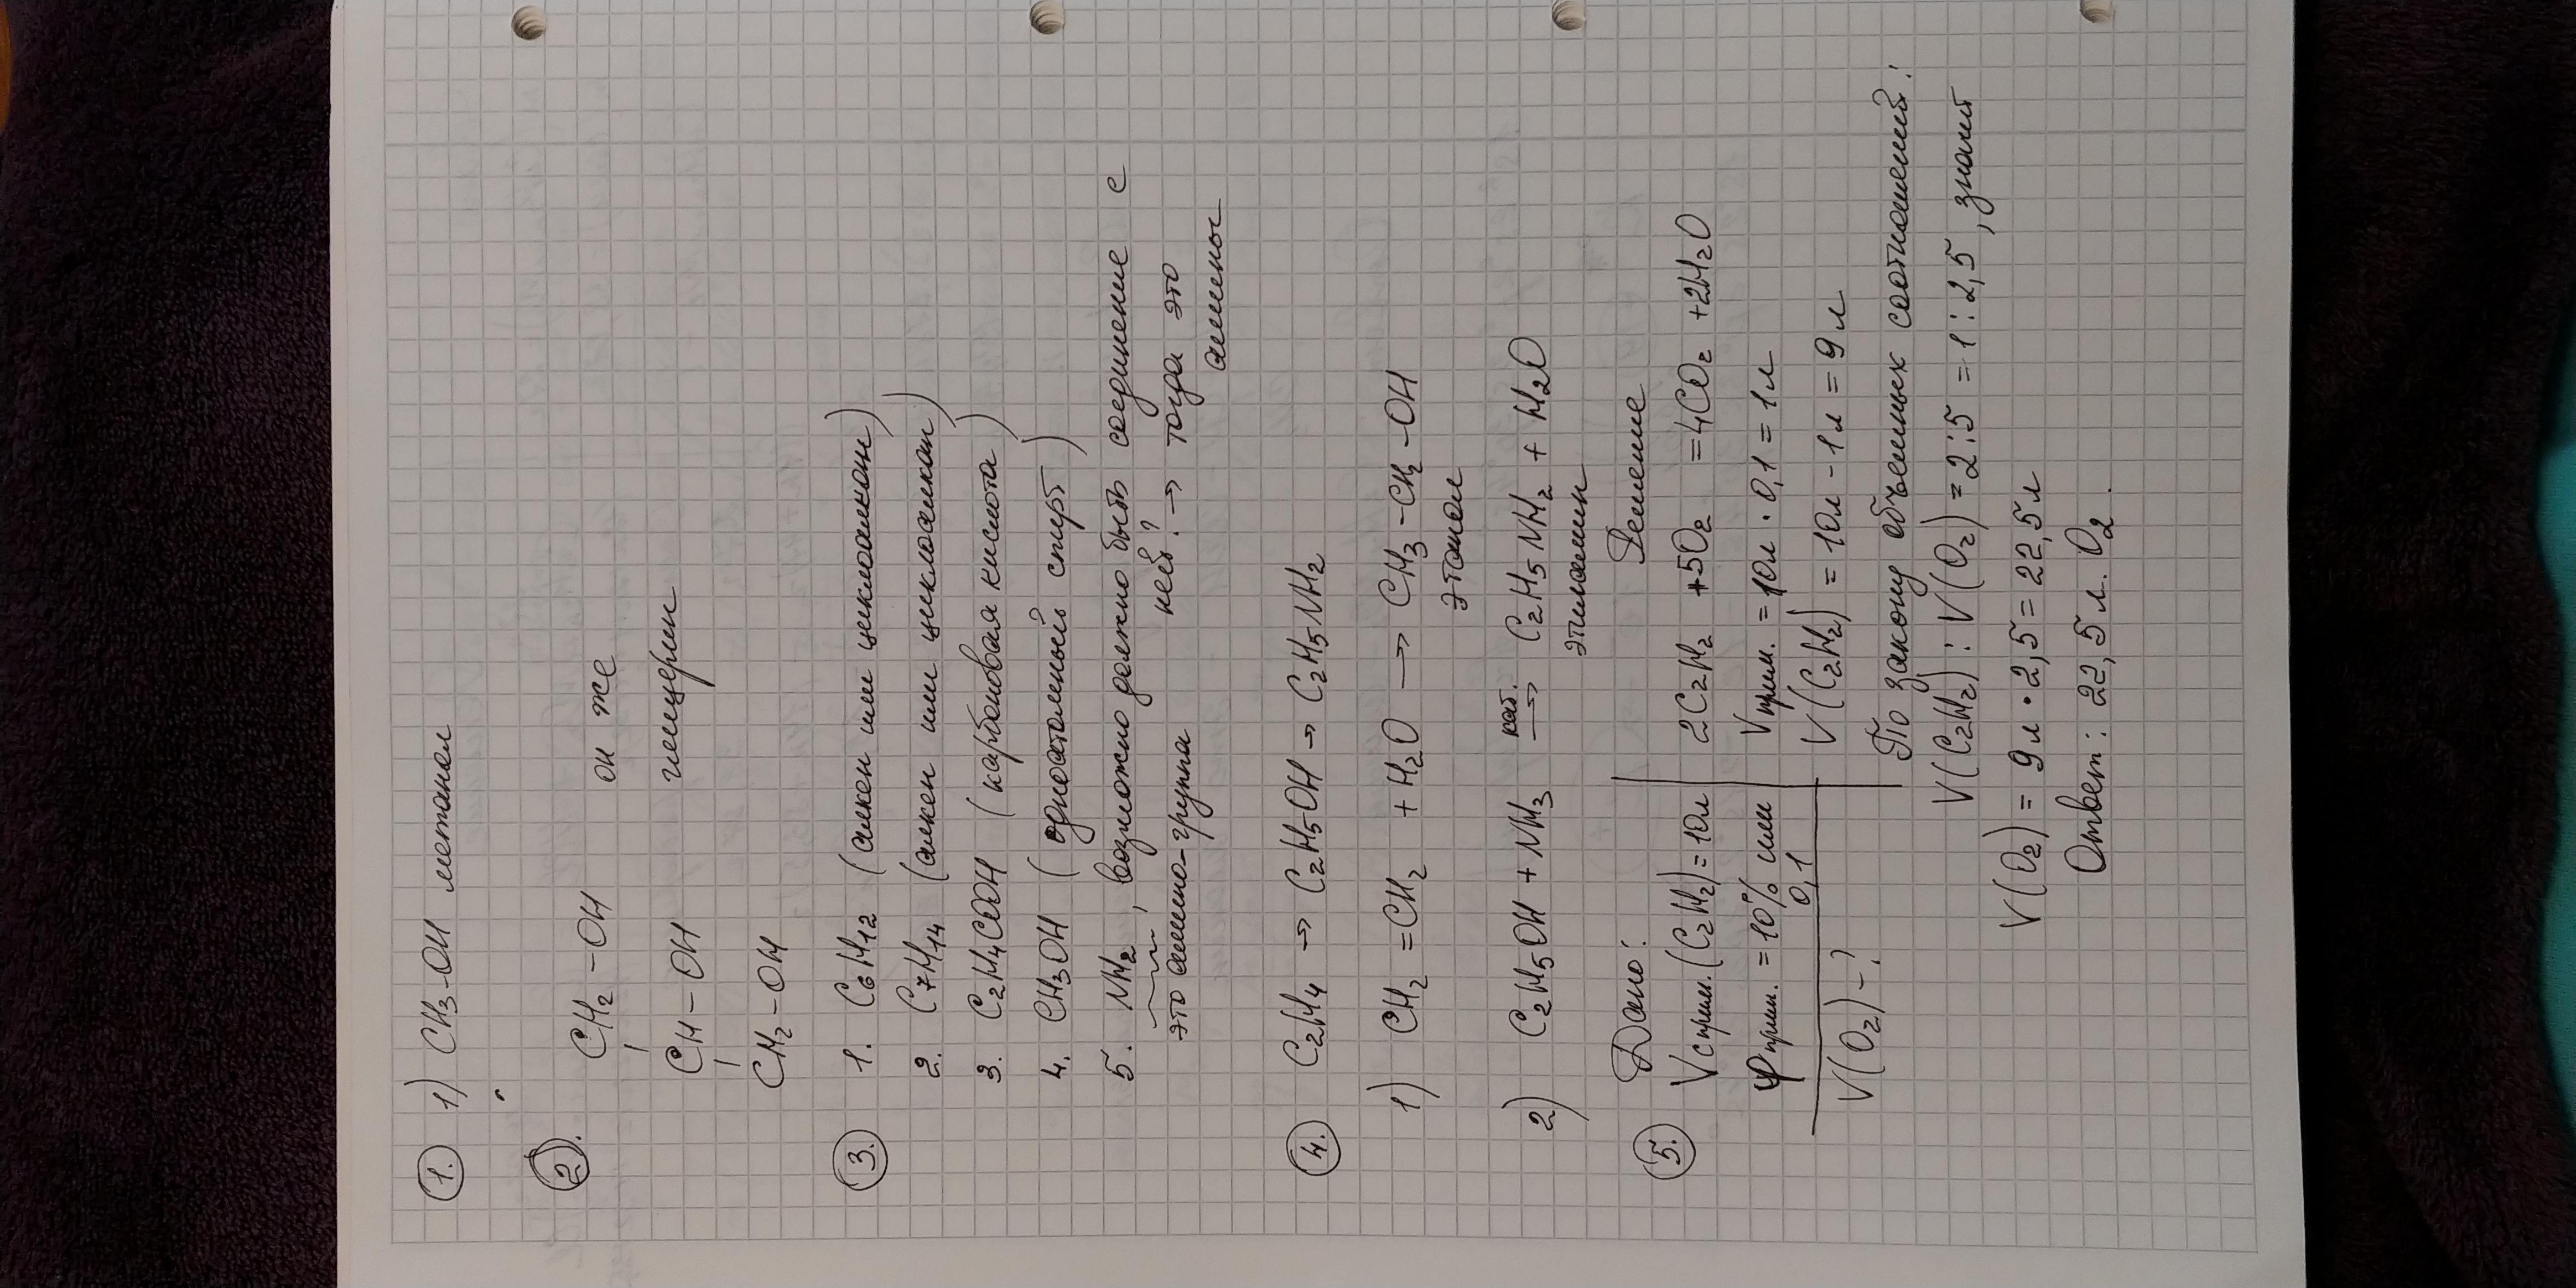 1. 1) CH₃-OH метанол
2. CH₂-OH
он же
CH-OH
глицерин
CH₂-OH
3. 1. C₆H₁₂ (алкен или циклоалкан)
2. C₇H₁₄ (алкен или циклоалкан)
3. C₂H₄COOH (карбоновая кислота)
4. CH₃OH (одноатомный спирт)
5. NH₂, возможно должно быть соединение с
это амино-группа
ней? → тогда это
амины
4. C₂H₄ → C₂H₅OH → C₂H₅NH₂
1) CH₂=CH₂ + H₂O → CH₃-CH₂-OH
этанол
2) C₂H₅OH + NH₃ кат. → C₂H₅NH₂ + H₂O
этиламин
5. Дано: Решение
Vсприм.(C₂H₂)=10л 2C₂H₂ +5O₂ =4CO₂ +2H₂O
φприм. =10% или 0,1 Vприм. =10л · 0,1 = 1л
V(O₂)-? V(C₂H₂) = 10л - 1л = 9л
По закону объемных соотношений:
V(C₂H₂) : V(O₂) = 2:5 = 1:2,5, значит
V(O₂) = 9л · 2,5 = 22,5л
Ответ: 22,5 л. O₂.